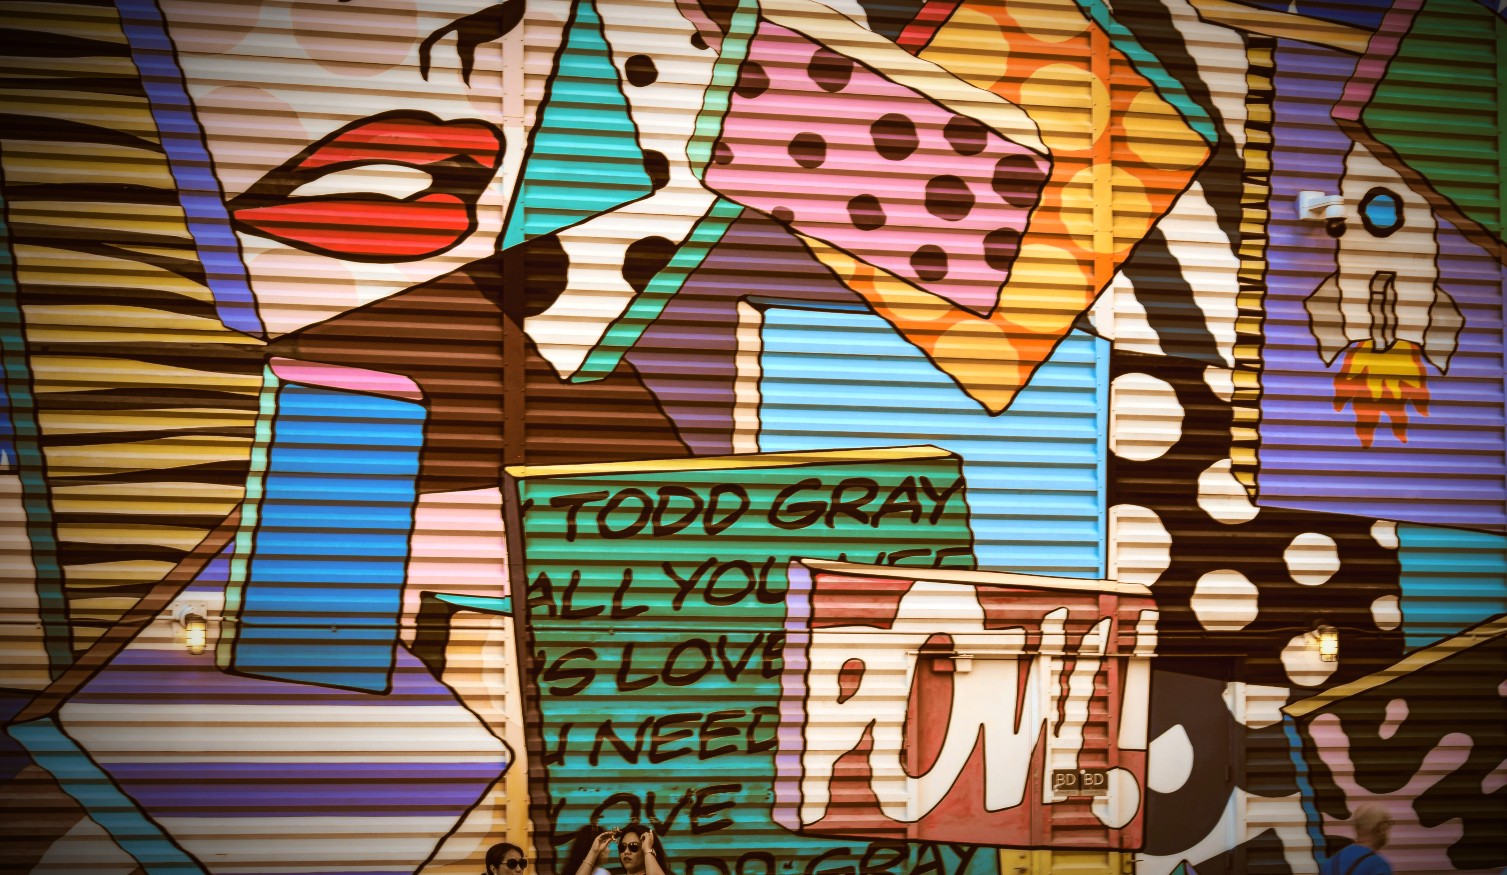 TODD GRAY
ALL YOU NEE
IS LOVE
U NEED
LOVE
DD GRAY
POW!
BD BD